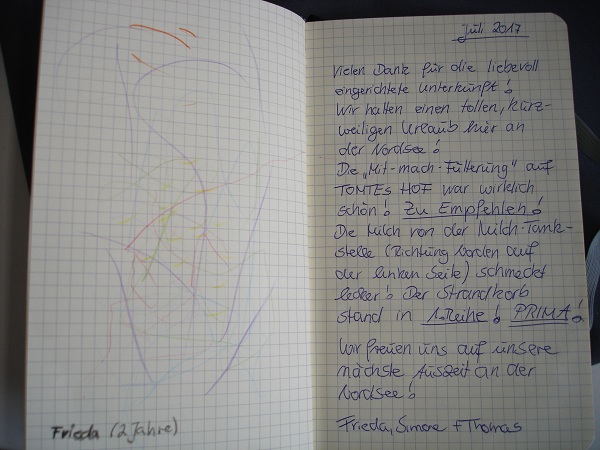 Frieda (2 Jahre)
Juli 2017
Vielen Dank für die liebevoll
eingerichtete Unterkunft!
Wir hatten einen tollen, kurz-
weiligen Urlaub hier an
der Nordsee!
Die „Mit-mach-Fütterung" auf
TOMTEs HOF war wirklich
schön! Zu Empfehlen!
Die Milch von der Milch-Tank-
stelle (Richtung Norden auf
der linken Seite) schmeckt
lecker! Der Strandkorb
stand in 1. Reihe! PRIMA!
Wir freuen uns auf unsere
nächste Auszeit an der
Nordsee!
Frieda, Simone + Thomas